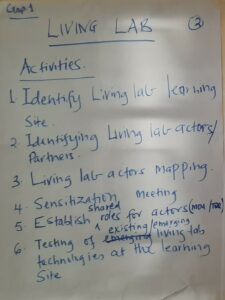 Group 1
LIVING LAB
3
Activities.
1. Identify Living lab learning
Site.
2. Identifying Living lab actors/
Partners.
3. Living lab actors mapping.
4. Sensitization meeting
shared
5. Establish roles for actors (MOU/TOR)
existing/emerging
6. Testing of emerging living lab
technologies at the learning
Site